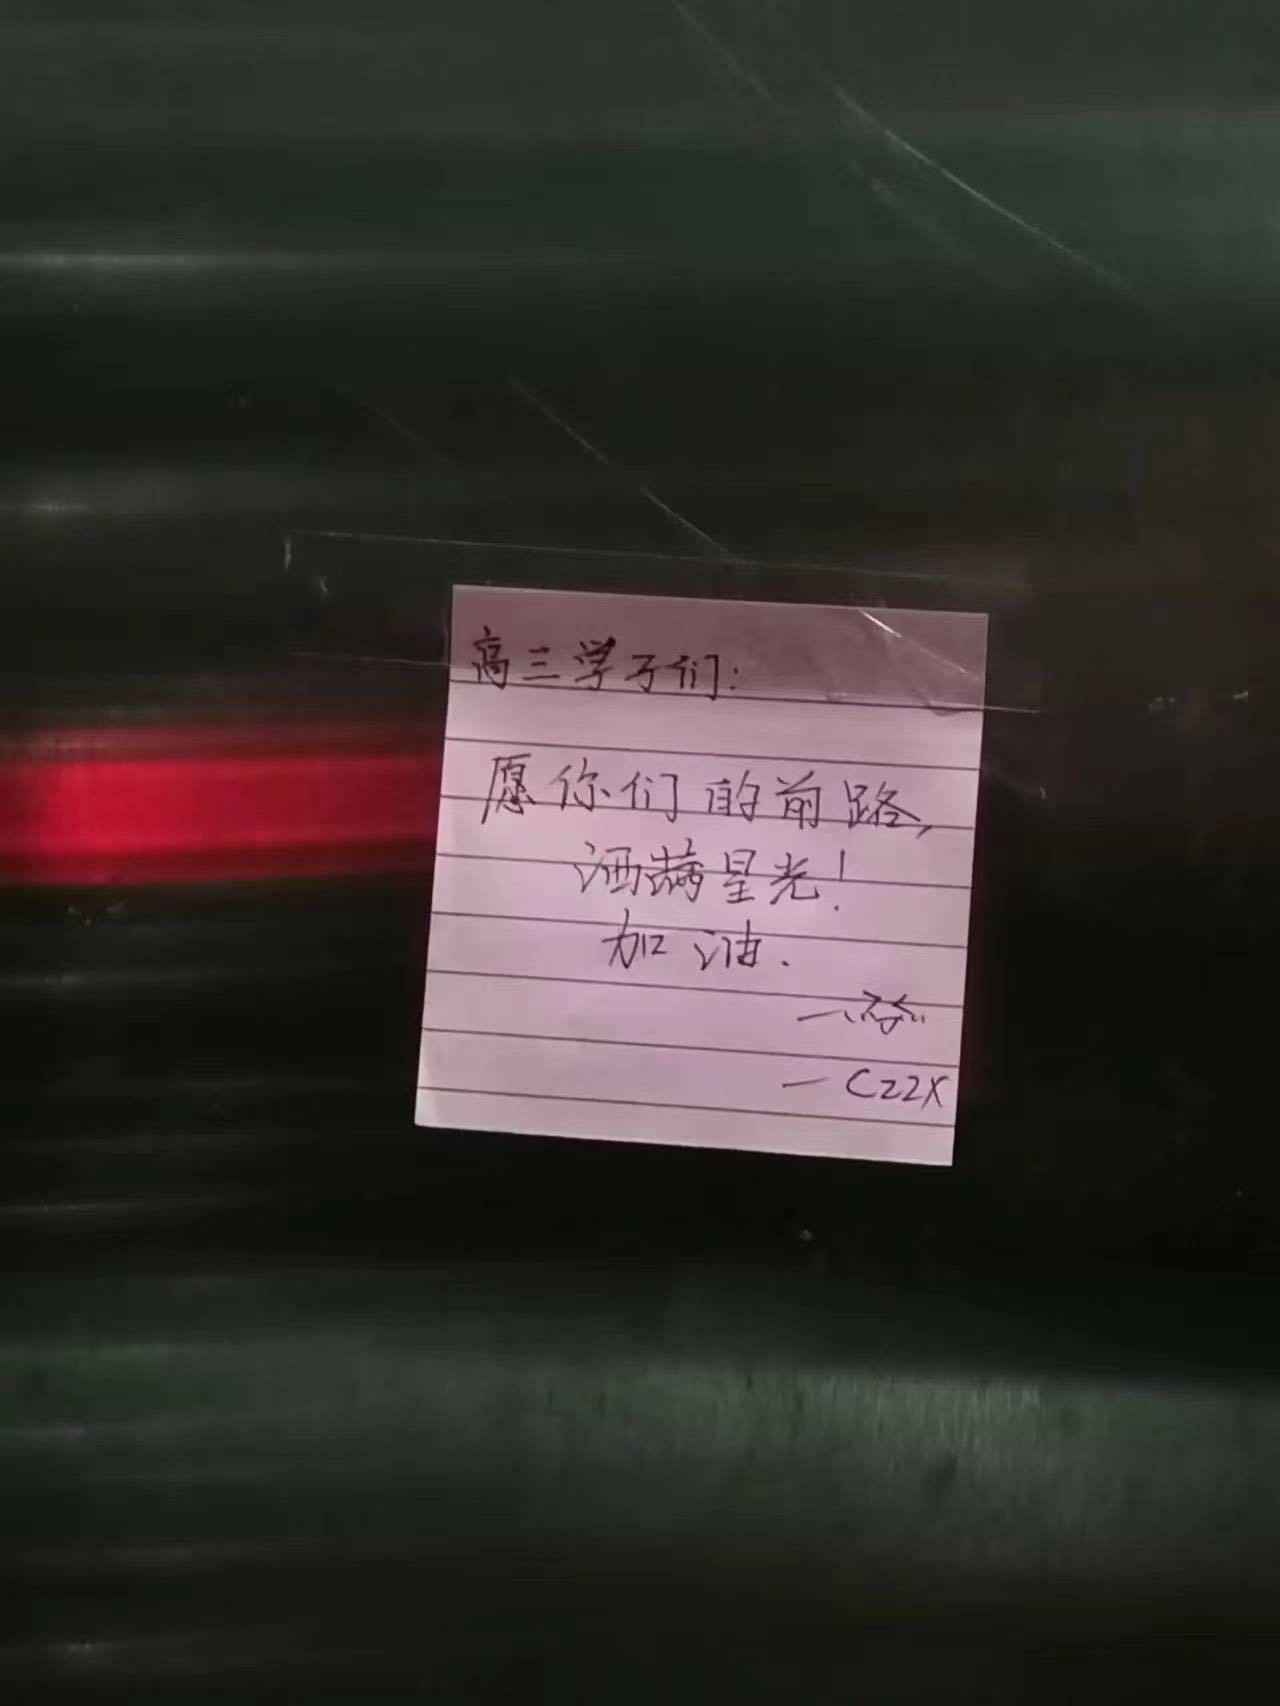 高三学子们:
愿你们的前路,
洒满星光!
加油.
— CZZX